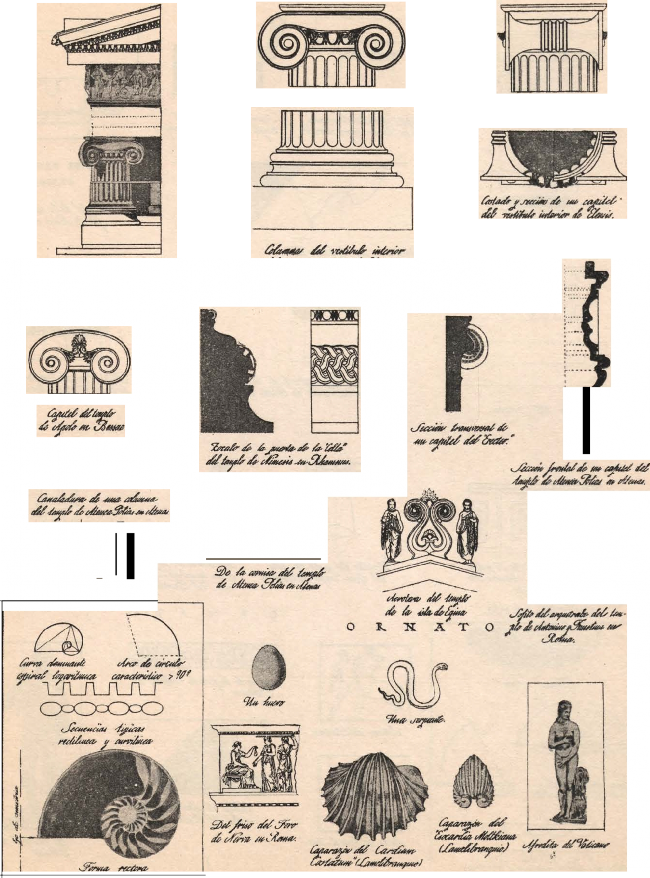 Columnas del vestíbulo interior
Costado y sección de un capitel
del vestíbulo interior de Eleusis.
Capitel del templo
de Apolo en Bassae
Zocalo de la puerta de la "Cella"
del templo de Némesis en Rhamnus.
Sección transversal de
un capitel del "Erecter."
Sección frontal de un capitel del
templo de Atenea Polias en Atenas.
Canaladura de una columna
del templo de Atenea Polias en Atenas
De la cornisa del templo
de Atenea Polias en Atenas
Acrotera del templo
de la isla de Egina
ORNATO
Sofito del arquitrabe del tem-
plo de Antonino y Faustina en
Roma.
Curva dominante
espiral logarítmica
Arco de círculo
característico > 90º
Secuencias típicas
rectilínea y curvilínea
Forma rectora
Un huevo
Una serpiente
Del friso del Foro
de Nerva en Roma.
Caparazón del Cardium
Costatum" (Lamelibranquio)
Caparazón del
Isocardia Moltkiana
(Lamelibranquio)
Afrodita del Vaticano